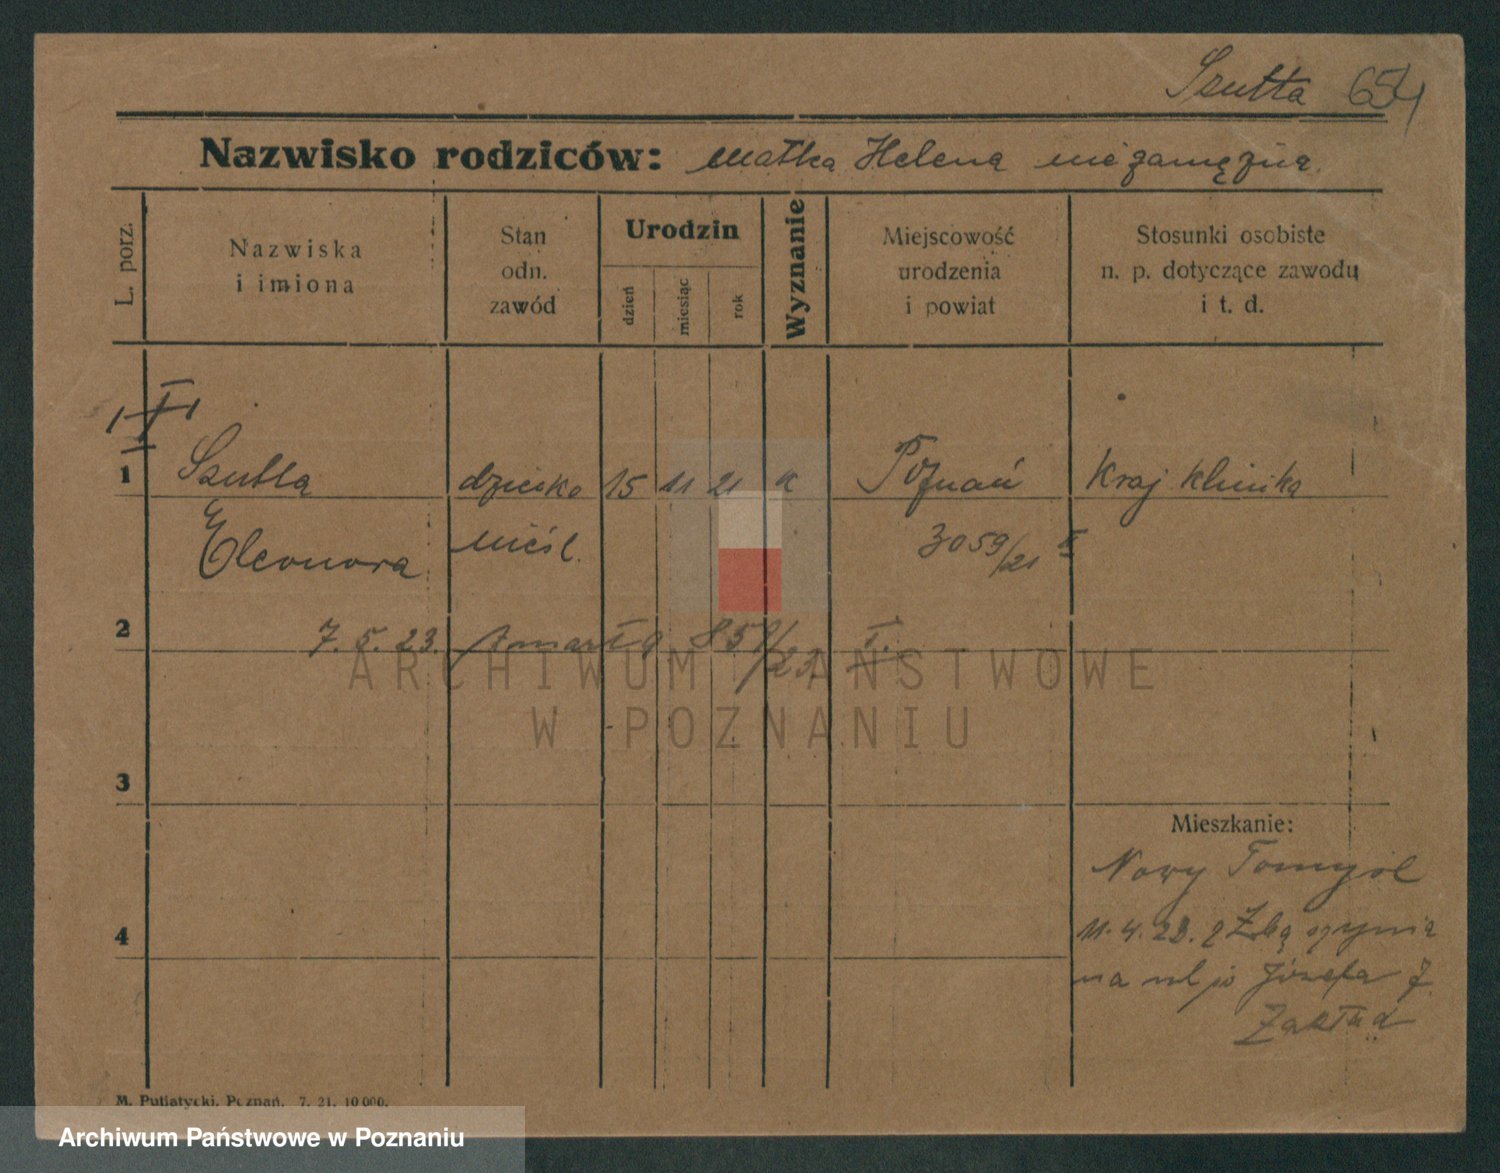 Szutta 654
Nazwisko rodziców: matka Helena niezamężna
L. porz.
Nazwiska
i imiona
Stan
odn.
zawód
Urodzin
dzień
miesiąc
rok
Wyznanie
Miejscowość
urodzenia
i powiat
Stosunki osobiste
n. p. dotyczące zawodu
i t. d.
1 Szutta dziecko 15 11 21 k Poznań Kraj klinika
Eleonora nieśl. 3059/21 II
2 7. 5. 23. zmarła /23 I.
3
Mieszkanie:
Nowy Tomyśl
4 11. 4. 23.
na ul Józefa 7
Zakład
ARCHIWUM PAŃSTWOWE
W POZNANIU
M. Putiatycki. Poznań. 7. 21. 10 000.
Archiwum Państwowe w Poznaniu